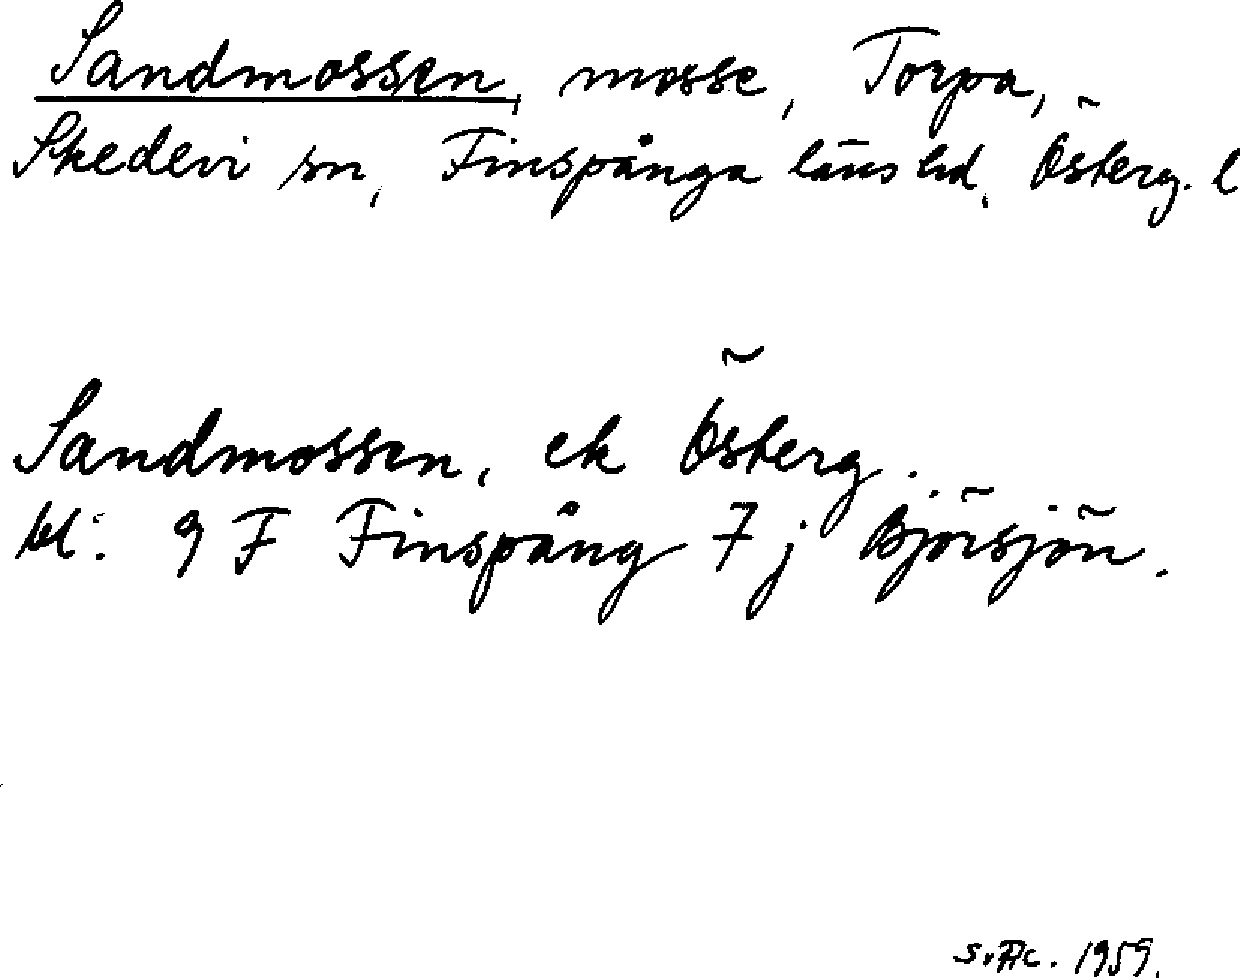 Sandmossen, mosse, Torpa,
Skedevi sn, Finspånga läns hd, Österg. l
Sandmossen, ek Österg.
bl. 9 F Finspång 7 j Björsjön.
1959.